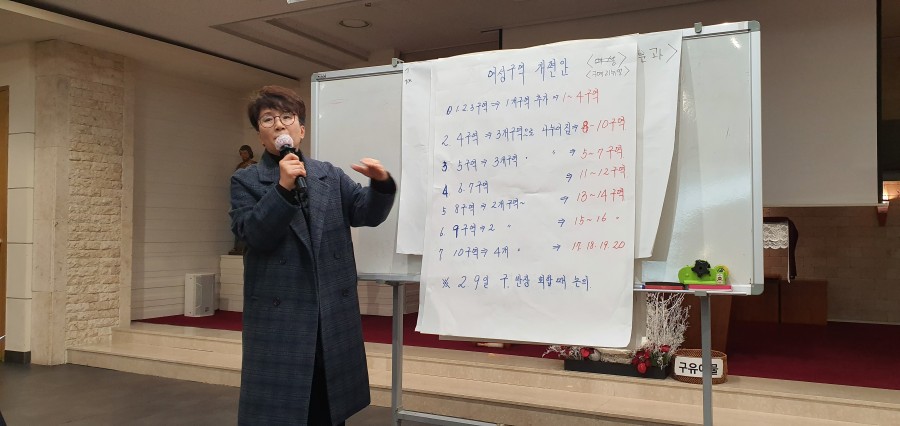 여성구역 개편안
1. 2. 3 구역 ⇒ 1개구역 추가 ⇒ 1~4구역
2 4구역 ⇒ 3개구역으로 나누어짐 ⇒ 8~10구역
3 5구역 ⇒ 3개구역 " " ⇒ 5~7구역
4 6. 7구역 ⇒ 11~12구역
5 8구역 ⇒ 2개구역~ ⇒ 13~14구역
6 9구역 ⇒ 2 " ⇒ 15~16 "
7 10구역 ⇒ 4개 " ⇒ 17. 18. 19. 20
※ 2. 9일 구, 반장 회합 때 논의
구유예물